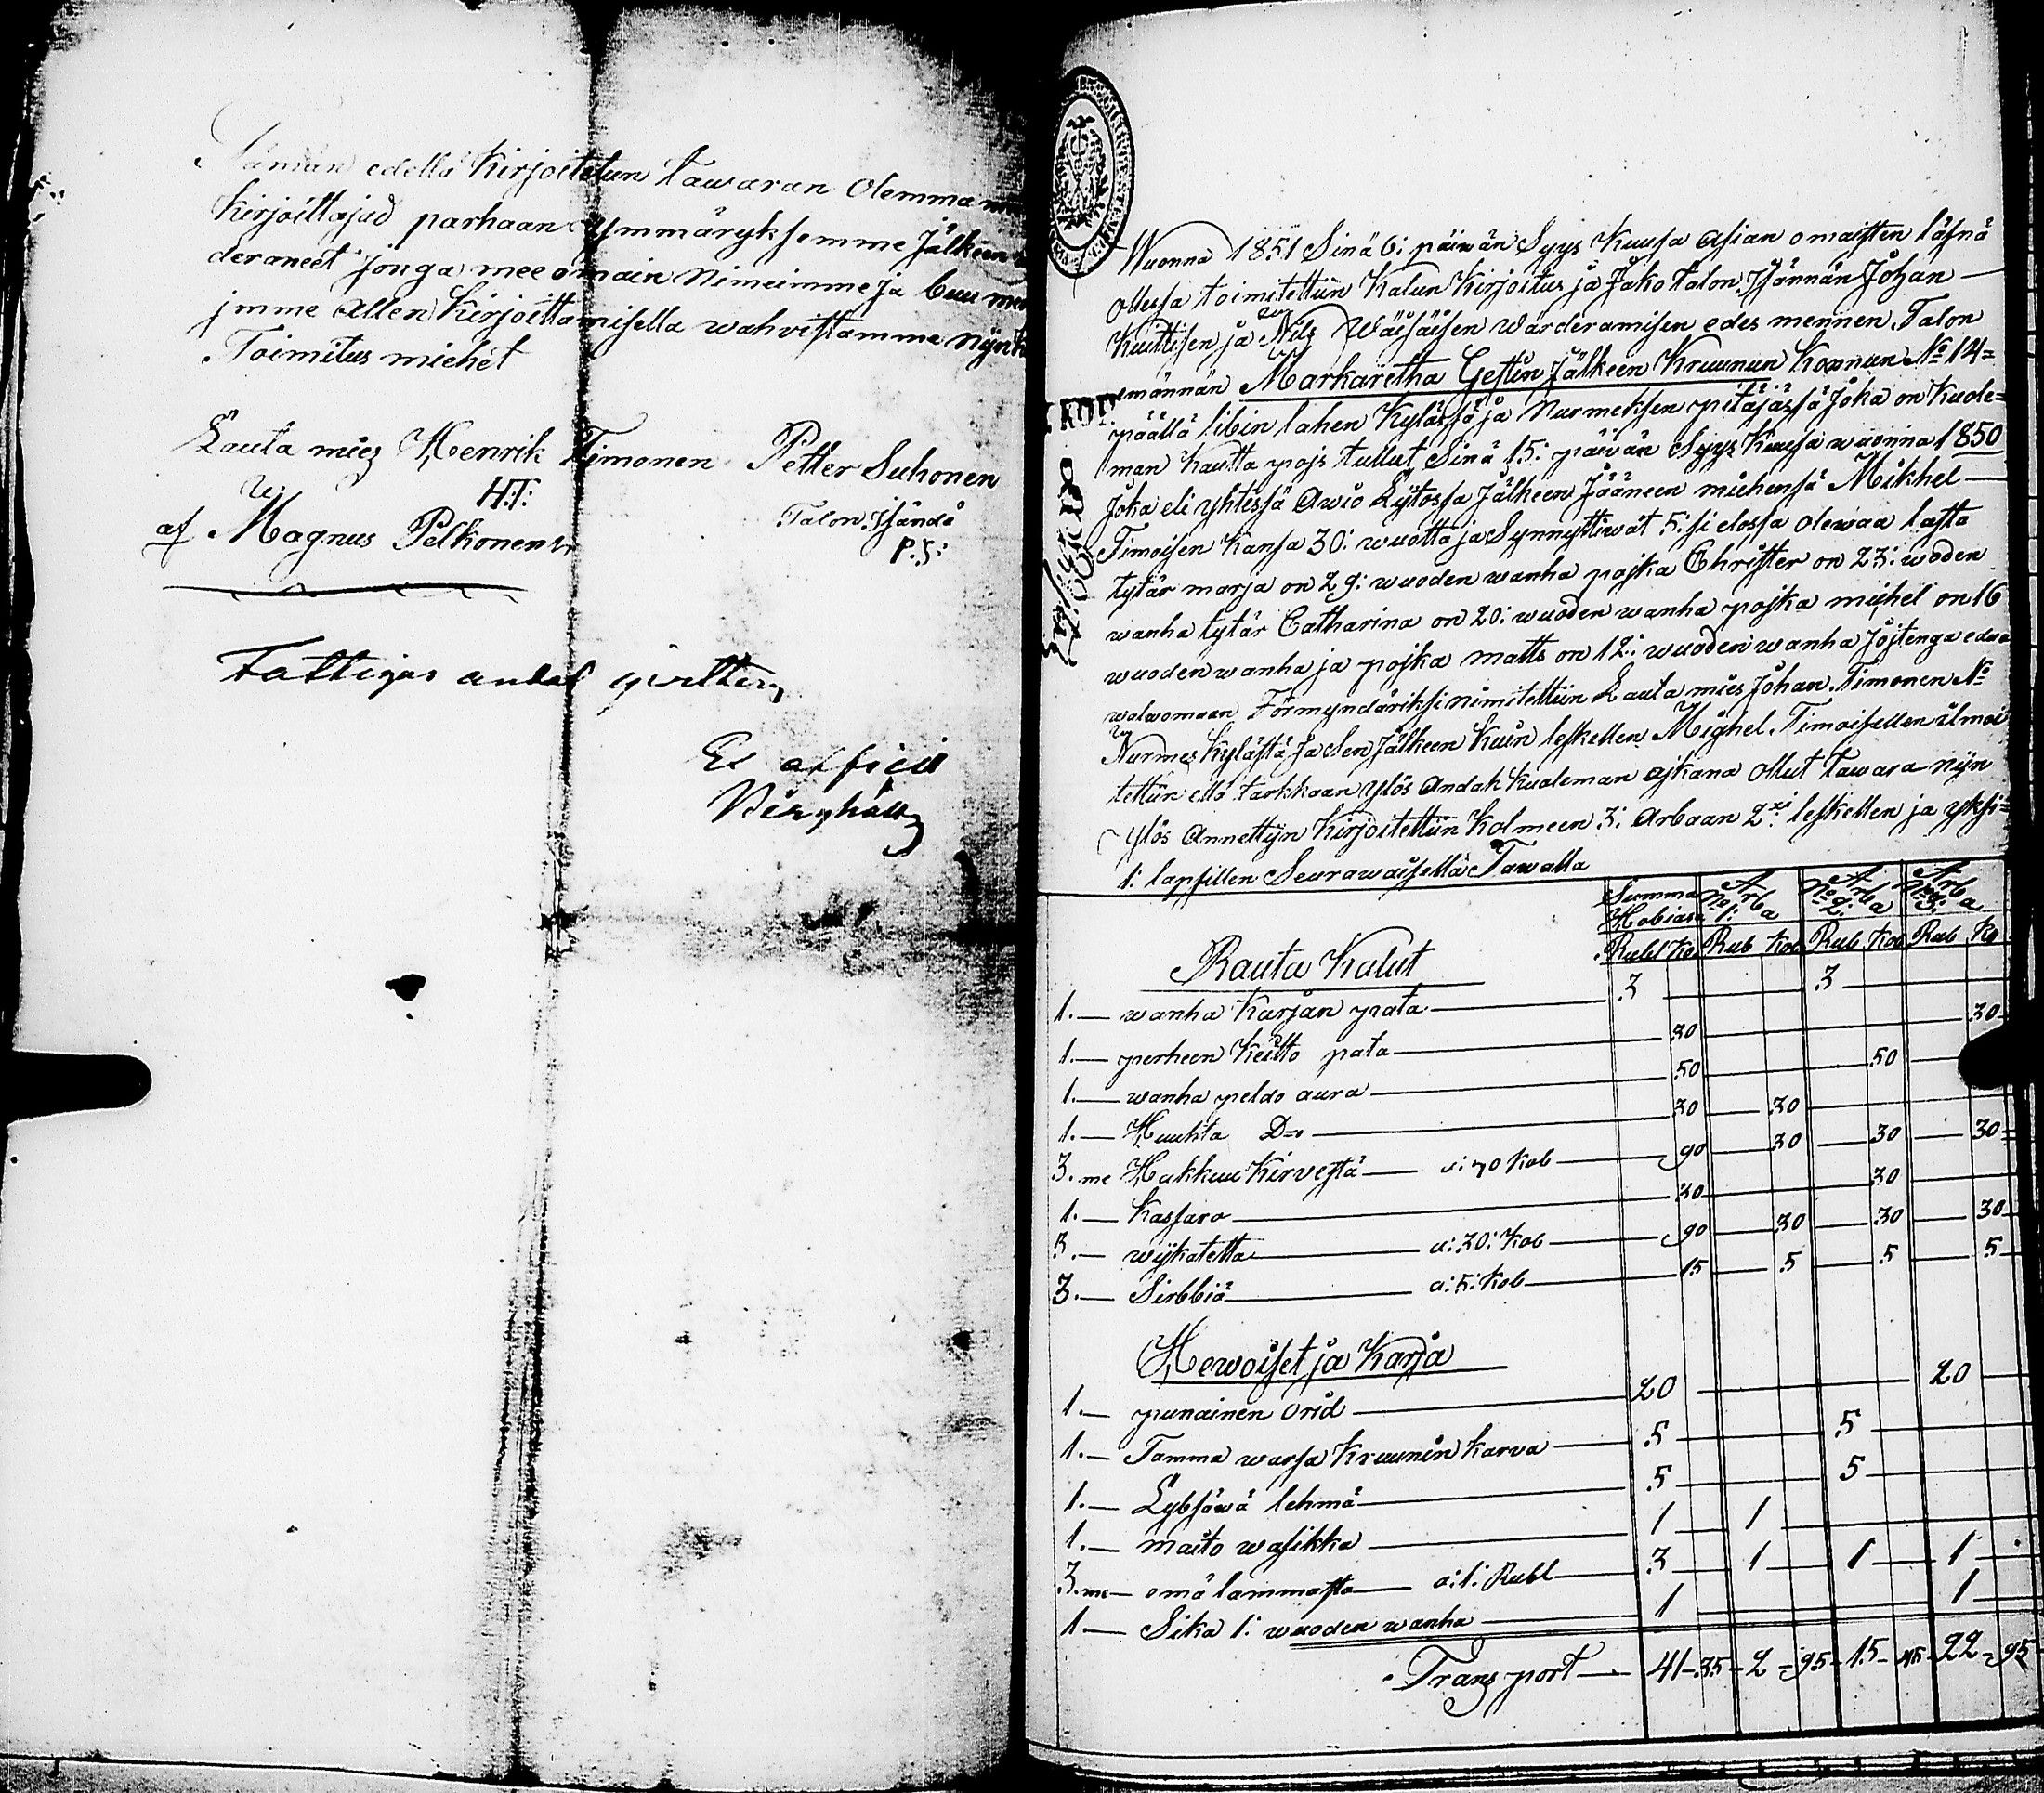 Tämän edellä Kirjoitetun tawaran Olemma
Kirjoittajad parhaan Ymmäryksemme Jälkeen
deraneet jonga mee omain Nimeimme ja buu
jmme allen Kirjoittamisella wahvistamme
Toimitus miehet
Lauta mies Henrik Timonen
H:T:
Petter Suhonen
Talon Isändä
P.S:
af Magnus Pelkonen
Fattigas andel
Ex officio
Wuonna 1851 Sinä 6: päiwän Syys Kuusa Asian omaisten läsnä
ollessa toimitettiin Kalun Kirjoitus ja Jako talon Isännän Johan
Kuittisen ja Nils Wäisäisen wärderamisen edes mennen Talon
emännän Markaretha Gestin Jälkeen Kruunun Konnun No 14=
päällä libin lahen Kylässä ja Nurmeksen pitäjässä Joka on Kuole=
man Kautta pojs tullut Sinä 15: päiwän Syys Kuusa wuonna 1850
Joka eli yhtessä Awio Lijtossa Jälkeen Jääneen miehensä Mikhel
Timoisen Kansa 30: wuotta ja Synnyttiwät 5:si elossa olewaa lasta
tytär marja on 29: wuoden wanha pojka Christer on 23: wuoden
wanha tytär Catharina on 20: wuoden wanha pojka michel on 16
wuoden wanha ja pojka matts on 12: wuoden wanha Jojtenga edua
walwomaan Förmyndäriksi nimitettiin Lauta mies Johan Timonen No
Nurmes Kylästä Ja Sen Jälkeen Kuin leskellen Mighel Timoisellen ilmoi
tettiin että tarkkaan ylös Andak Kuoleman ajkana Ollut tawara nijn
Ylös Annettijn Kirjoitettiin Kolmeen 3: Arbaan 2xi leskellen ja yksi=
1: lapsillen Seurawaisella Tawalla
Summa Hobiasa Arba No 1: Arba No 2: Arba No 3:
Rubl Ko Rub Kob Rub Kob Rub Ko
Rauta Kalut
1. wanha Karjan pata 3 3
1. perheen Keitto pata 30 30
1. wanha peldo aura 50 50
1. Huuhta D=o 30 30
3.me Hakkuu Kirvestä Kob 90 30 30 30
1. Kassara 30 30
3. wijkatetta a:30: Kob 90 30 30 30
3. Sirbbiä a:5: Kob 15 5 5 5
Hewoiset ja Karja
1. punainen Orid 20 20
1. Tamma warsa Kruunin Karva 5 5
1. Lybsäwä lehmä 5 5
1. maito wasikka 1 1
3.me emä lammasta a:1: Rubl 3 1 1 1
1. Sika 1: wuoden wanha 1 1
Transport 41 35 2 95 15 45 22 95